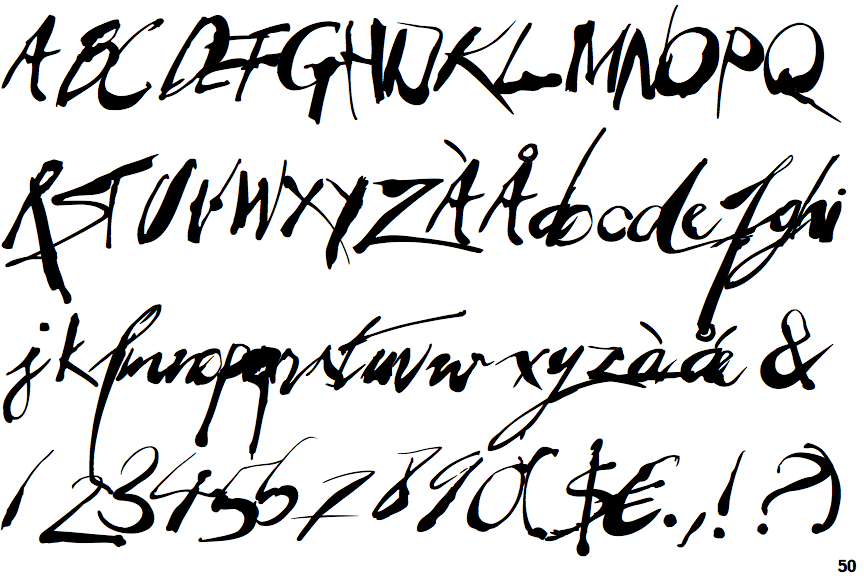 ABCDEFGHIJKLMNOPQ
RSTUVWXYZÀÅabcdefghi
jklmnopqrstuvwxyzàåé&
1234567890($€.,!?)
50